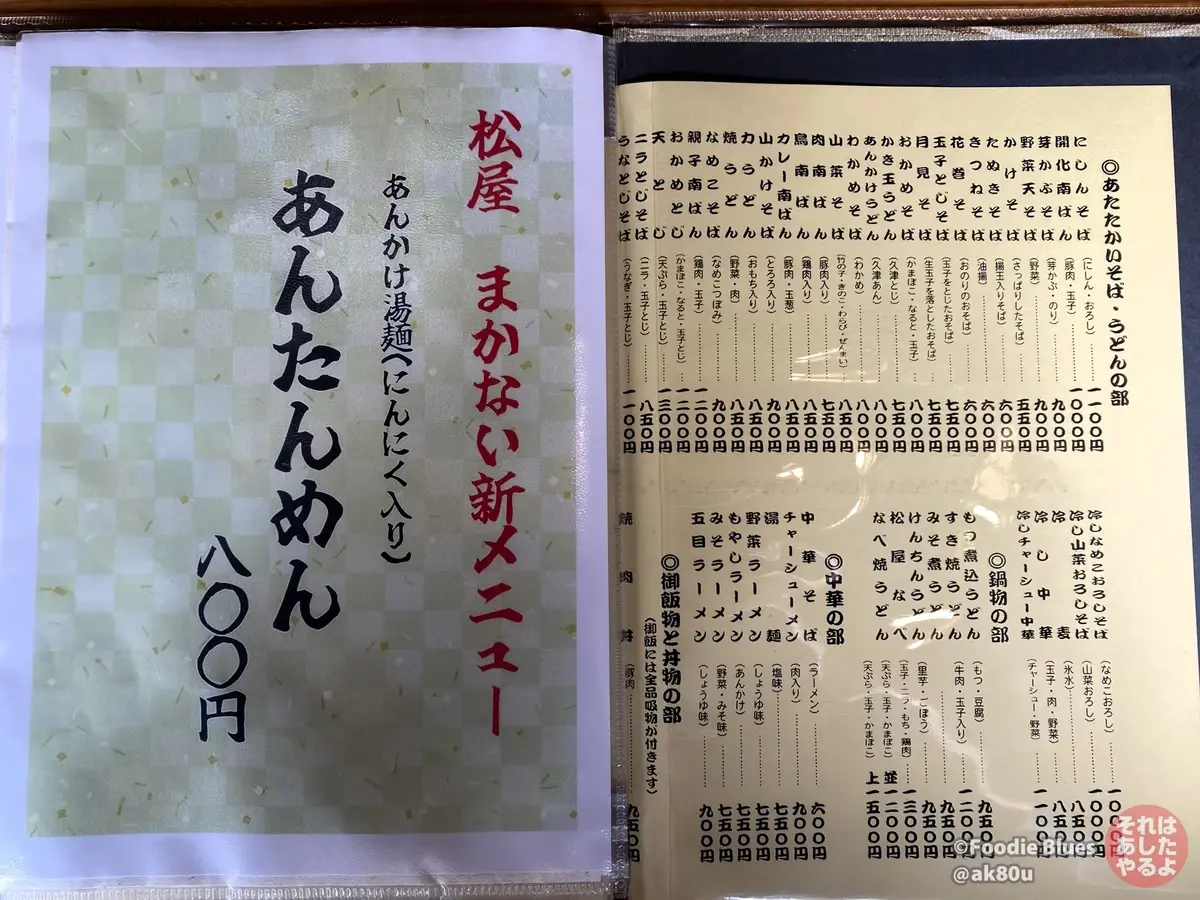 松屋 まかない新メニュー
あんかけ湯麺(にんにく入り)
あんたんめん
八〇〇円
◎あたたかいそば・うどんの部
にしんそば(にしん・おろし)……一一〇〇円
開化南ばん(豚肉・玉子)……一〇〇〇円
芽かぶそば(芽かぶ・のり)……九〇〇円
野菜天そば(野菜)……九〇〇円
かけそば(さっぱりしたそば)……五五〇円
たぬきそば(揚玉入りそば)……六〇〇円
きつねそば(油揚)……六〇〇円
花巻そば(おのりのおそば)……六〇〇円
玉子とじそば(玉子をとじたおそば)……七五〇円
月見そば(生玉子を落としたおそば)……七五〇円
おかめそば(かまぼこ・なると・玉子)……八〇〇円
かき玉うどん(久津とじ)……七五〇円
あんかけうどん(久津あん)……八〇〇円
わかめそば(わかめ)……八〇〇円
山菜そば(竹の子・きのこ・わらび・ぜんまい)……八五〇円
肉南ばん(豚肉入り)……八五〇円
鳥南ばん(鶏肉入り)……八五〇円
カレー南ばん(豚肉・玉葱)……八五〇円
山かけそば(とろろ入り)……九〇〇円
力うどん(おもち入り)……八五〇円
焼うどん(野菜・肉)……八五〇円
なめこそば(なめこつぼみ)……九〇〇円
親子南ばん(鶏肉・玉子)……一二〇〇円
おかめとじ(かまぼこ・なると・玉子とじ)……一二〇〇円
天とじ(天ぷら・玉子とじ)……一三〇〇円
ニラとじそば(ニラ・玉子とじ)……八五〇円
うなとじそば(うなぎ・玉子とじ)……一一〇〇円
冷しなめこおろしそば(なめこおろし)……一〇〇〇円
冷し山菜おろしそば(山菜おろし)……一〇〇〇円
冷麦(氷水)……八五〇円
冷し中華(玉子・肉・野菜)……八五〇円
冷しチャーシュー中華(チャーシュー・野菜)……一一〇〇円
◎鍋物の部
もつ煮込うどん(もつ・豆腐)……九五〇円
すき焼うどん(牛肉・玉子入り)……一二〇〇円
みそ煮うどん……九五〇円
けんちんうどん(里芋・ごぼう)……九五〇円
松屋なべ(玉子・ニラ・もち・鶏肉)……一三〇〇円
なべ焼うどん(天ぷら・玉子・かまぼこ)並一二〇〇円
(天ぷら・玉子・かまぼこ)上一五〇〇円
◎中華の部
中華そば(ラーメン)……六〇〇円
チャーシューメン(肉入り)……九〇〇円
湯麺(塩味)……七五〇円
野菜ラーメン(しょうゆ味)……七五〇円
もやしラーメン(あんかけ)……七五〇円
みそラーメン(野菜・みそ味)……七五〇円
五目ラーメン(しょうゆ味)……九〇〇円
◎御飯物と丼物の部
(御飯には全品吸物が付きます)
焼肉丼(豚肉)……九五〇円
©FoodieBlues
@ak80u
それは
あした
やるよ